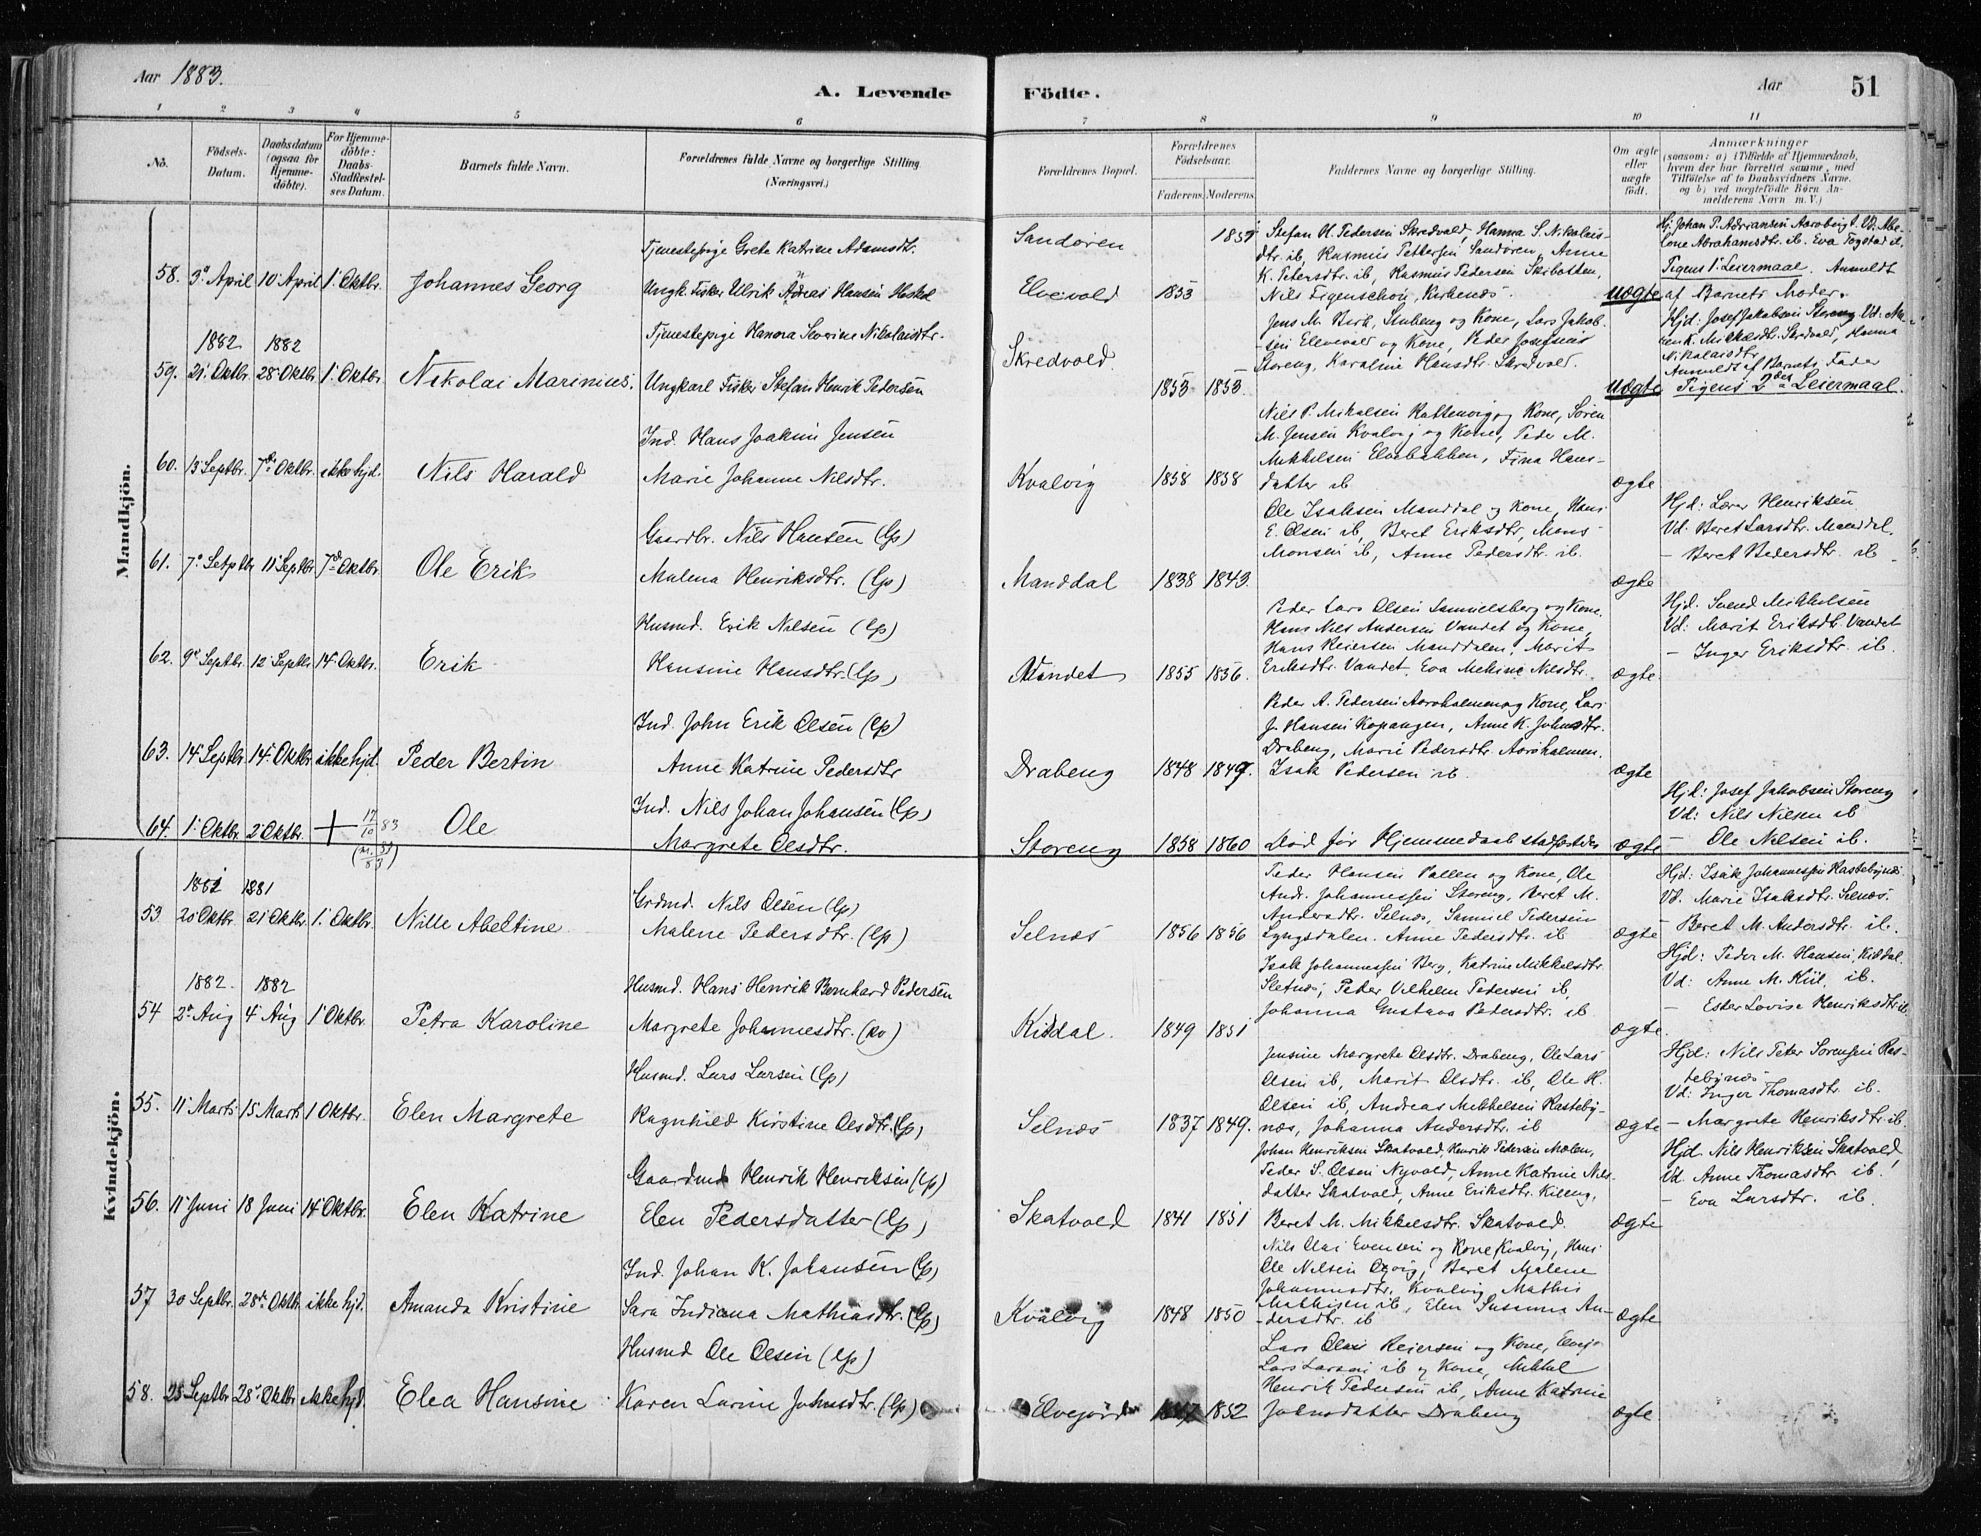 Aar 1883.
A. Levende Födte.
Aar 51
1 2 3 4 5 6 7 8 9 10 11
No.
Födsels-Datum.
Daabsdatum (ogsaa for Hjemme-döbte).
For Hjemme-döbte: Daabs-Stadfæstel-ses Datum.
Barnets fulde Navn.
Forældrenes fulde Navne og borgerlige Stilling
(Næringsvei.)
Forældrenes Bopæl.
Forældrenes Födselsaar.
Faderens. Moderens.
Faddernes Navne og borgerlige Stilling.
Om ægte eller uægte födt.
Anmærkninger
(saasom: a) i Tilfælde af Hjemmedaab,
hvem der har forrettet samme, med
Tilföielse af to Daabsvidners Navne.
og b) ved uægtefödte Börn An-
melderens Navn m. V.)
Mandkjön.
58. 3. April 10 April 1. Oktbr. Johannes Georg
Tjenestepige Grete Katrine Adamsdtr.
Ungk. Fisker Ulrik Andreas Hansen
Sandören
Elvevold 1853
Stefan H. Pedersen Skredvold, Hanna S. Nikolais-
dtr. ib, Rasmus Pettersen Sandören, Anne
K. Petersdtr. ib, Rasmus Pedersen Skibotten,
Nils Figenschou, Kirkenæs.
uægte
Hj. Johan P. Adriansen
lone Abrahamsdtr. ib. Eva Fogstad ib.
Pigens 1. Leiermaal. Anmeldt
af Barnets Moder.
59. 1882 21. Oktbr. 1882 28. Oktbr. 1. Oktbr. Nikolai Marinius.
Tjenestepige Hanora Severine Nikolaisdtr.
Ungkarl Fisker Stefan Henrik Pedersen
Skredvold.
1853 1853.
og Kone, Lars Jakob-
sen Elvevold og Kone, Peder Josefsen
Storeng, Karoline Hansdtr. Skredvold.
uægte
Hjd: Josef Jakobsen Storeng Vd: Ma-
ren K. Mikkelsdtr. Skredvold, Hanna
Nikolaisdtr.
Anmeldt af Barnets Fader
Pigens 2det Leiermaal.
60. 13 Septbr. 7de Oktbr. ikke hjd. Nils Harald
Ind. Hans Joakim Jensen
Marie Johanne Nilsdtr.
Kvalvig 1858 1858
Nils P. Mikalsen Rattenvig og Kone, Sören
M. Jensen Kvalvig og Kone, Peder M.
Mikkelsen Elvebakken, Fina Hans-
datter ib
ægte
61. 7. Setptbr 11 Septbr 7de Oktbr. Ole Erik
Gaardbr. Nils Hansen (Lp)
Malena Henriksdtr. (Lp)
Manddal 1838 1843.
Ole Isaksen Manddal og Kone, Hans
E. Olsen ib, Beret Eriksdtr, Mons
Monsen ib, Anne Pedersdtr. ib.
ægte
Hjd: Lærer Henriksen
Vd: Beret Larsdtr. Manddal.
— Beret Pedersdtr. ib
62. 9. Septbr. 12 Septbr. 14. Oktbr. Erik
Husmd. Erik Nilsen (Lp)
Hansine Hansdtr. (Lp)
Vandet 1855 1856.
Peder Lars Olsen Samuelsberg og Kone.
Hans Nils Andersen Vandet og Kone,
Hans Reiersen Manddalen, Marit
Eriksdtr. Vandet, Eva Mekine Nilsdtr.
ægte
Hjd. Svend Mikkelsen
Vd: Marit Eriksdtr Vandet
— Inger Eriksdtr. ib.
63. 14 Septbr. 14. Oktbr. ikke hjd. Peder Bertin
Ind. John Erik Olsen (Lp)
Anne Katrine Pedersdtr
Drabeng 1848 1849.
Peder A. Pedersen Aaroholmen og Kone, Lars
J. Hansen Kopangen, Anne K. Johnsdtr.
Drabeng, Marie Pedersdtr. Aaroholmen.
Isak Pedersen ib.
ægte
64. 1. Oktbr. 2. Oktbr. + 17/10 83 Ole
Ind. Nils Johan Johansen (Lp)
Margrete Olsdtr.
Storeng 1858 1860
Död för Hjemmedaab stadfæstedes
ægte
Hjd: Josef Jakobsen Storeng
Vd: Nils Nilsen ib
— Ole Nilsen ib.
Kvindekjön.
53 20 Oktbr. 1881 21 Oktbr. 1. Oktbr. Nille Abeltine
Grdmd. Nils Olsen (Lp)
Malene Pedersdtr. (Lp)
Selnæs 1856 1856
Peder Hansen Pollen og Kone, Ole
Andr. Johannessen Storeng, Beret M.
Andersdtr. Selnæs, Samuel Pedersen
Lyngsdalen. Anne Pedersdtr. ib
ægte
Hjd: Isak Johannessen Rastebynæs
Vd. Marie Isaksdtr. Selnæs.
— Beret M. Andersdtr. ib.
54 1882. 2. Aug 1882 4 Aug 1. Oktbr. Petra Karoline
Husmd. Hans Henrik Bernhard Pedersen
Margrete Johannesdtr. (kv)
Kiddal. 1849 1851
Isak Johannessen Berg, Katrine Mikkelsdtr
Sletnæs, Peder Vilhelm Pedersen ib,
Johanna Gustava Pedersdtr. ib
ægte.
Hjd: Peder M. Hansen, Kiddal.
Vd: Anne M. Kiil, ib.
— Ester Lovise Henriksdtr ib.
55. 11 Marts 15 Marts 1 Oktbr. Elen Margrete
Husmd. Lars Larsen (Lp)
Ragnhild Kirstine Olsdtr. (Lp)
Selnæs 1837 1849.
Jensine Margrete Olsdtr. Drabeng, Ole Lars
Olsen ib, Marit Olsdtr. ib, Ole H.
Olsen ib, Andreas Mikkelsen Rasteby-
næs, Johanna Andersdtr. ib
ægte
Hjd: Nils Peter Sörensen Ras-
tebynæs
Vd: Inger Thomasdtr. ib.
— Margrete Henriksdtr ib.
56. 11 Juni 18 Juni 14. Oktbr. Elen Katrine
Gaardmd Henrik Henriksen (Lp)
Elen Pedersdatter (Lp)
Skatvold 1841 1851
Johan Henriksen Skatvold, Henrik Pedersen Molen,
Peder S. Olsen Nyvold, Anne Katrine Nils-
datter Skatvold, Anne Eriksdtr. Kileng,
Beret M. Mikkelsdtr. Skatvold.
ægte
Hjd Nils Henriksen Skatvold
Vd. Anne Thomasdtr ib.
— Eva Larsdtr. ib.
57 30 Septbr. 28de Oktbr. ikke hjd. Amanda Kristine
Ind. Johan K. Johansen (Lp)
Sara Indiana Mathiasdtr. (Lp)
Kvalvig 1848 1850
Nils Olai Evensen og Kone Kvalvig, Hans
Ole Nilsen, Beret Malene
Johannesdtr. Kvalvig Mathis
Mathisen ib, Elen Susanna An-
dersdtr. ib
ægte
58. 25 Septbr 28. Oktbr ikke hjd. Elea Hansine
Husmd Ole Olsen (Lp)
Karen Larine Johnsdtr. (Lp)
Elvejord 1852
Lars Olai Reiersen og Kone,
Lars Larsen ib og Kone, Mikkel
Henrik Pedersen ib, Anne Katrine
Johnsdatter Drabeng
ægte